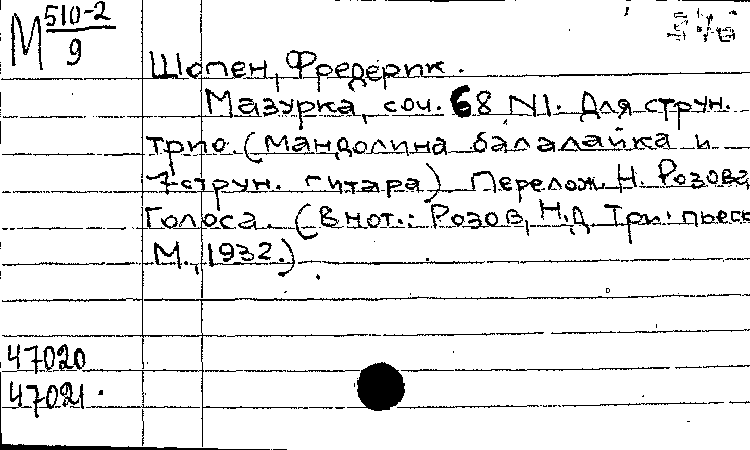 М 510-2
9
Шопен, Фредерик.
Мазурка, соч. 68 N1. Для струн.
трио. (мандолина балалайка и
7струн. гитара) Перелож. Н. Розова
Голоса. (В нот.: Розов, Н.Д. Три пьесы
М., 1932.)
47020
47021.